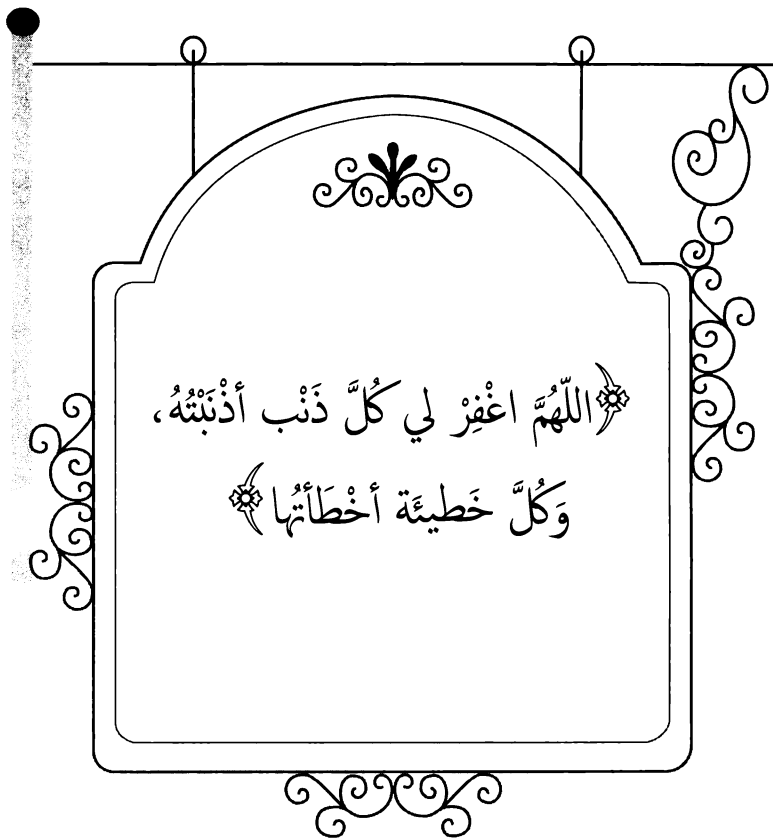 ﴿اللّهُمَّ اغْفِرْ لي كُلَّ ذَنْب أذْنَبْتُهُ،
وَكُلَّ خَطيئَة أخْطَأتُها﴾